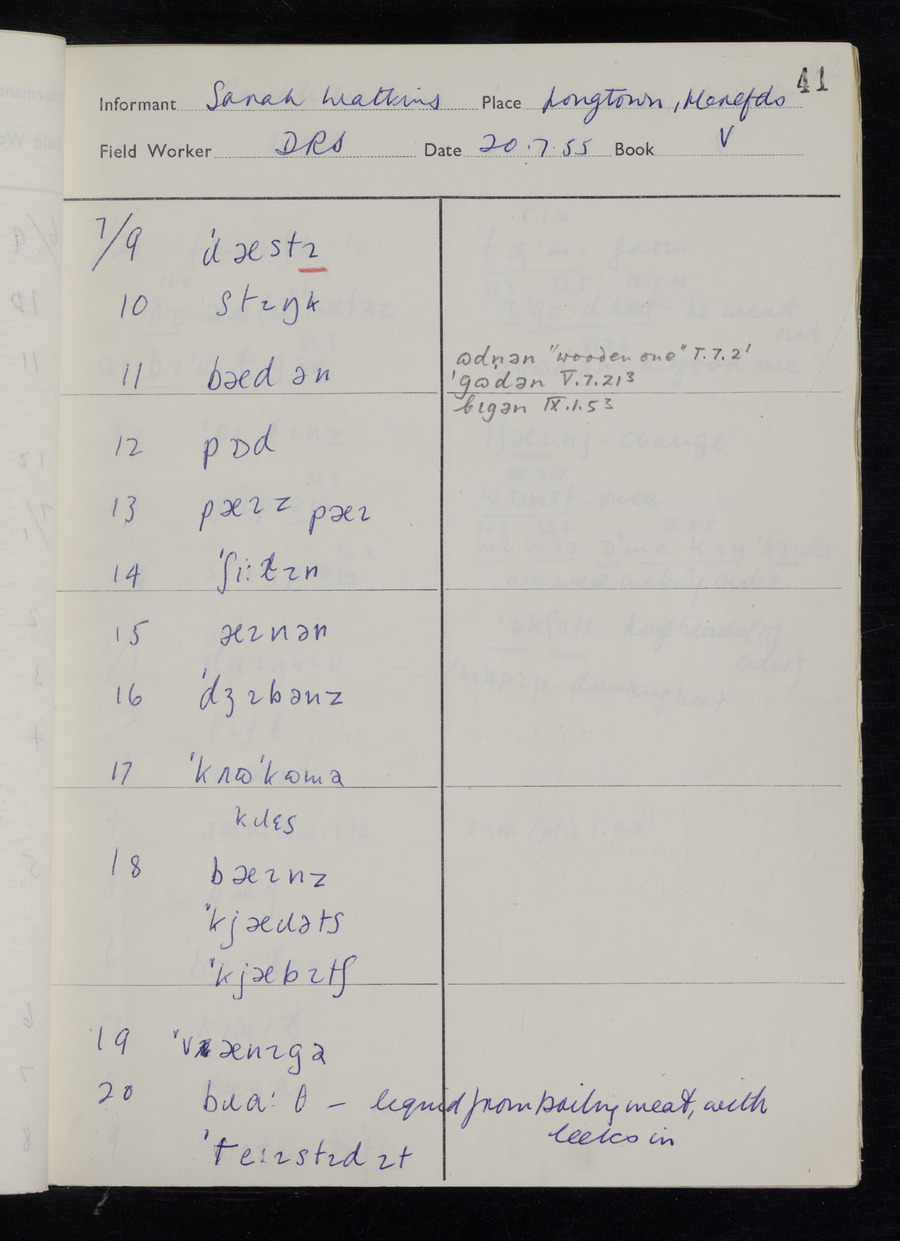 41
Informant Sarah Watkins Place Longtown, Herefds
Field Worker DRS Date 20.7.55 Book V
7/9 ˈdæstɪ
10 stɪŋk
11 bæedən
ɷdn̩ən "wooden one" V.7.21
ˈgɷdən V.7.21³
bɪgən IX.1.5³
12 pɒd
13 pæɪz pæɪ
14 ˈʃiːtɪn
15 æɪnən
16 ˈdʒɪbənz
17 ˈkʌɷˈkɷmə
kɹɛs
18 bæɪnz
ˈkjæɹəts
ˈkjæbɪtʃ
19 ˈvænɪgə
20 bɹɑːθ – liquid from boiling meat, with
leeks in